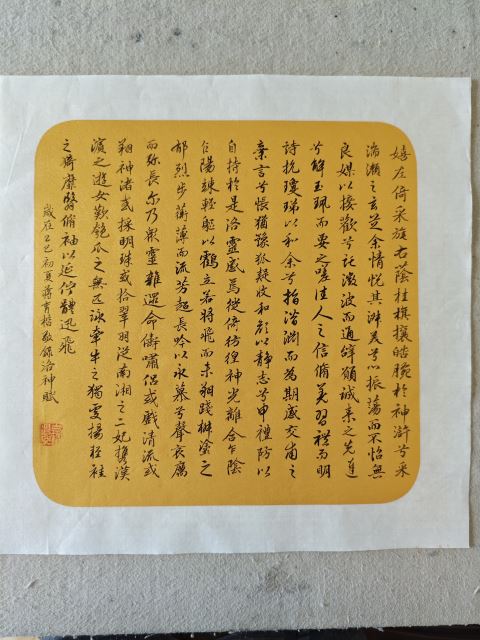 嬉左倚采旄右蔭桂旗攘皓腕於神滸兮采
湍瀨之玄芝余情悅其淑美兮心振蕩而不怡無
良媒以接歡兮託微波而通辭願誠素之先達
兮解玉珮而要之嗟佳人之信脩羌習禮而明
詩抗瓊珶以和余兮指潛淵而為期感交甫之
棄言兮悵猶豫狐疑收和顏以靜志兮申禮防以
自持於是洛靈感焉徙倚彷徨神光離合乍陰
乍陽竦輕軀以鶴立若將飛而未翔踐椒塗之
郁烈步蘅薄而流芳超長吟以永慕兮聲哀厲
而彌長尔乃眾靈雜遝命儔嘯侶或戲清流或
翔神渚或採明珠或拾翠羽從南湘之二妃攜漢
濱之遊女歎匏瓜之無匹詠牽牛之獨處揚輕袿
之猗靡翳脩袖以延佇體迅飛
歲在乙巳初夏蔣育楷敬錄洛神賦